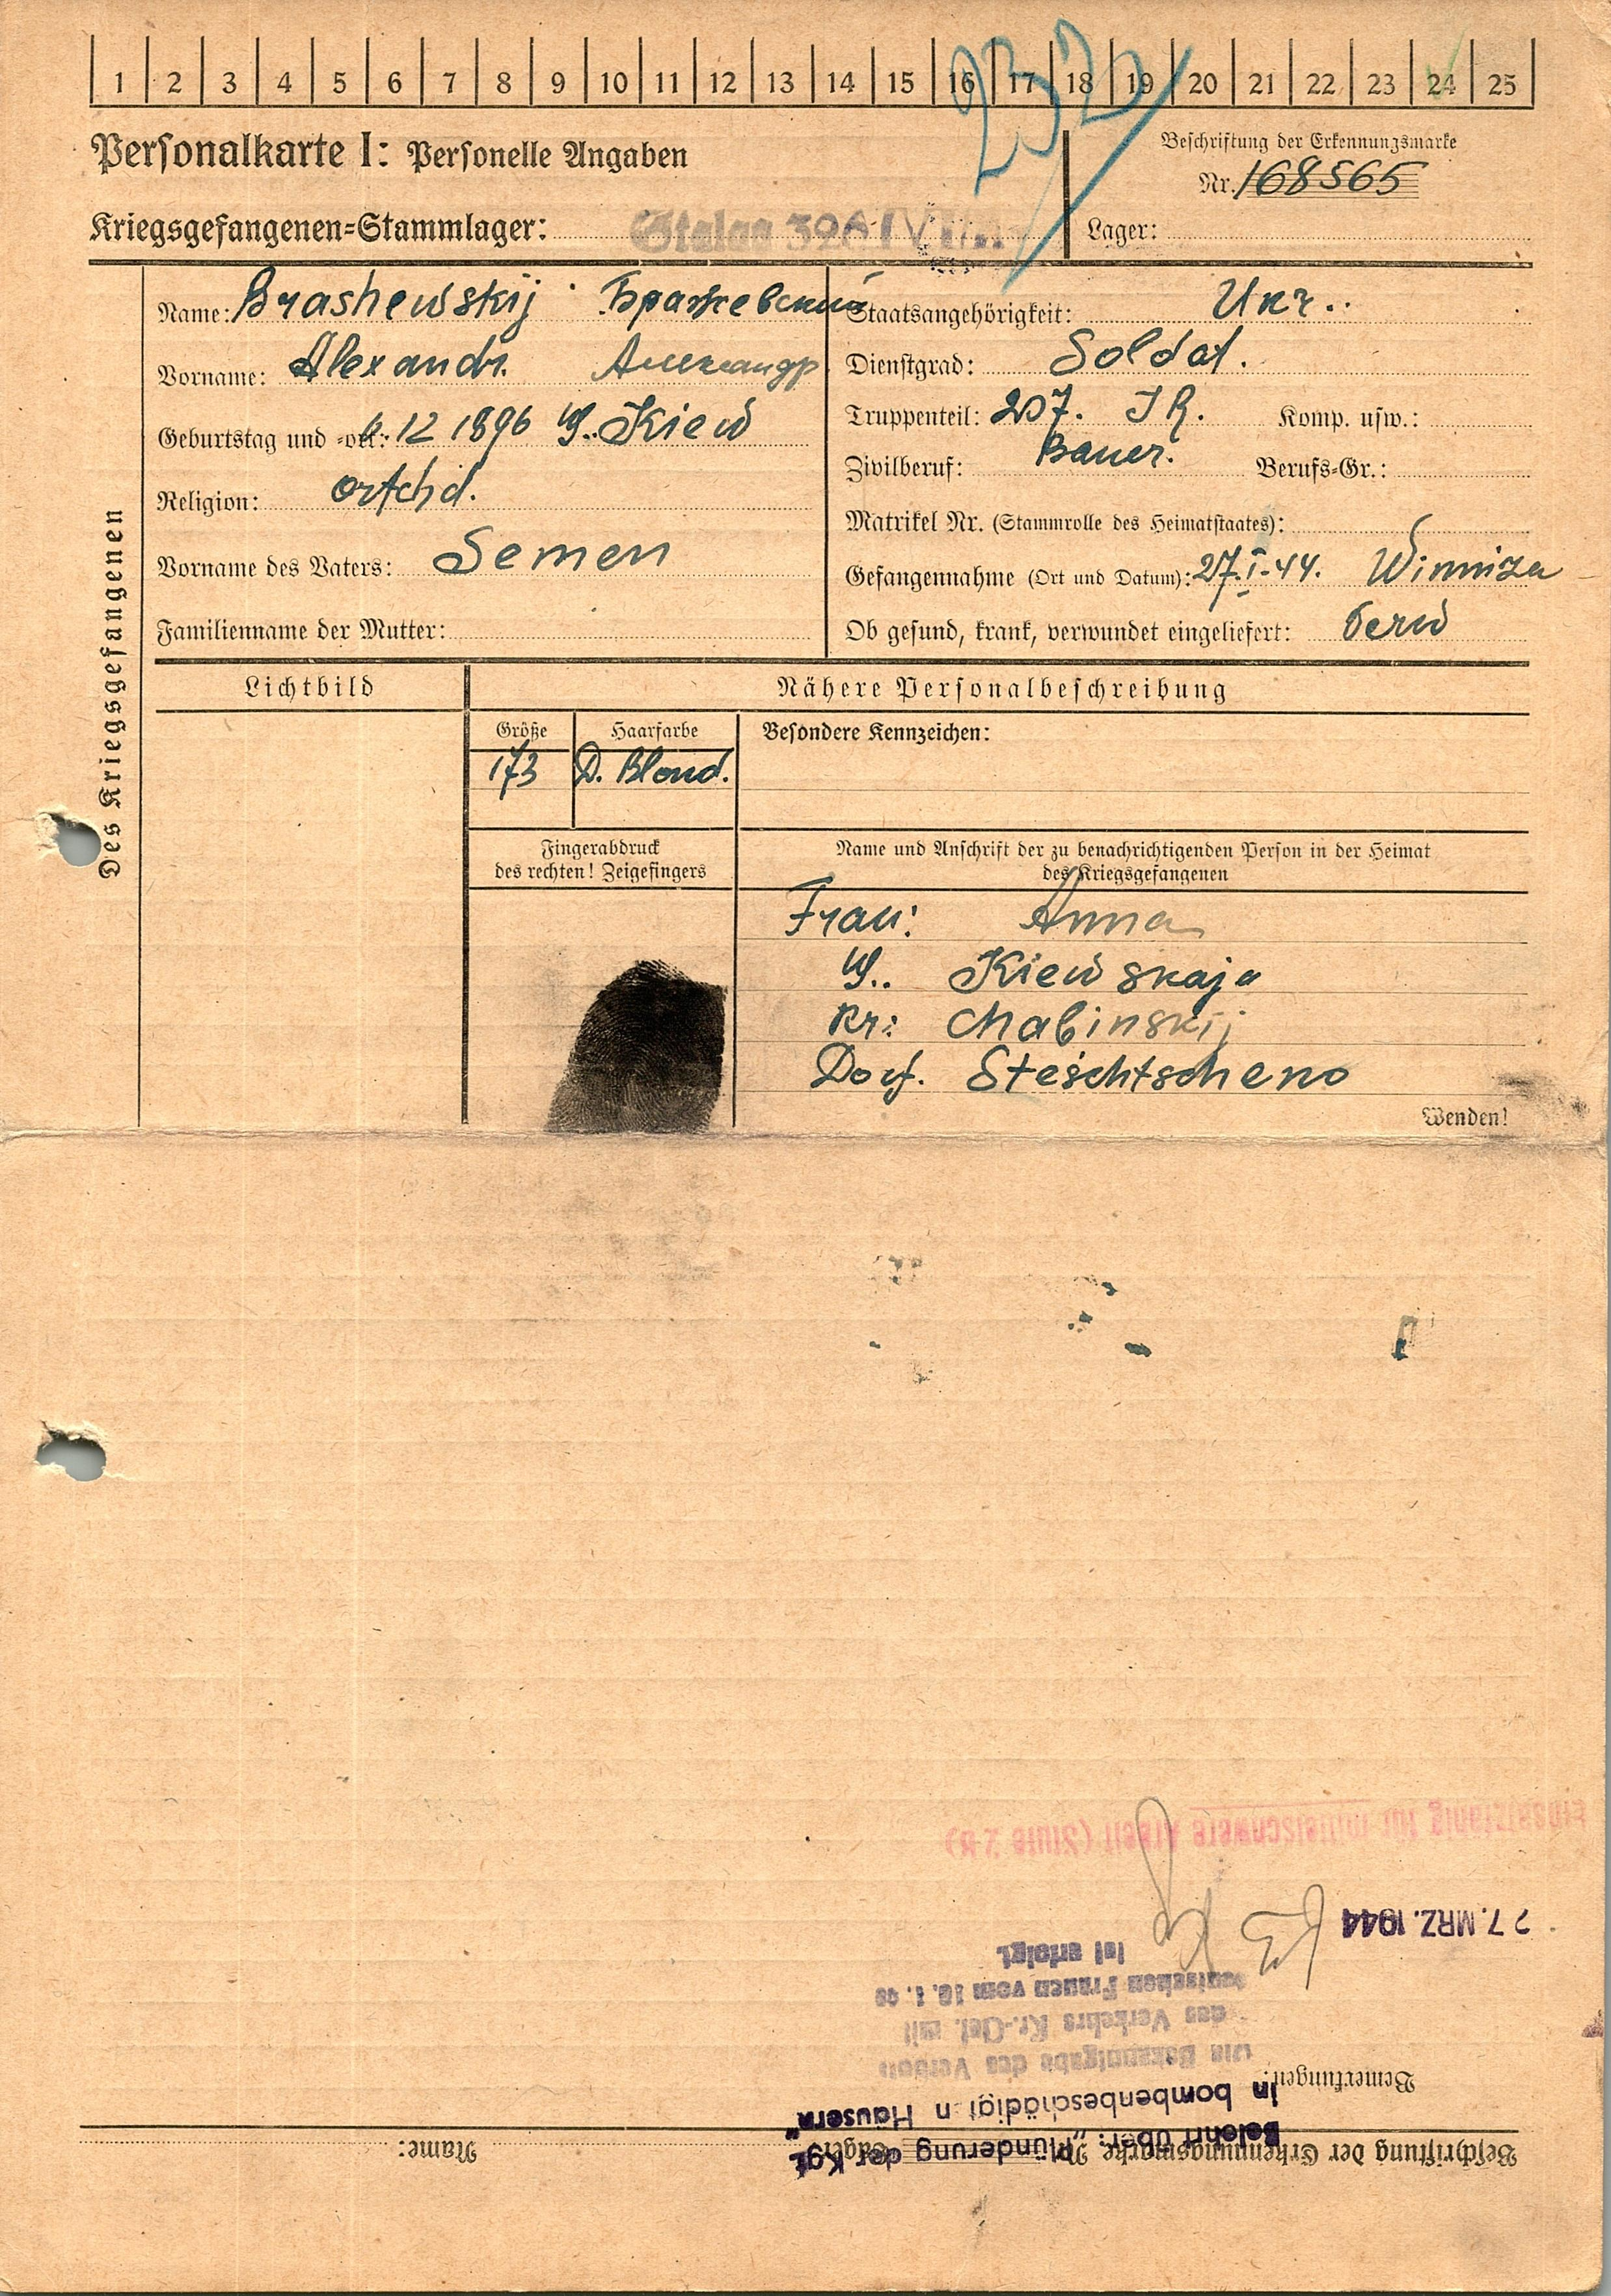 1 2 3 4 5 6 7 8 9 10 11 12 13 14 15 16 17 18 19 20 21 22 23 24 25
Personalkarte I: Personelle Angaben
Beschriftung der Erkennungsmarke
Nr. 168565
Kriegsgefangenen-Stammlager: Stalag 326
Lager:
Des Kriegsgefangenen
Name: Brashewskij Бражевский
Vorname: Alexandr. Александр
Geburtstag und -ort: 6.12 1896 G. Kiew
Religion:
Vorname des Vaters: Semen
Familienname der Mutter:
Staatsangehörigkeit: Ukr.
Dienstgrad: Soldat.
Truppenteil: 207. I R. Komp. usw.:
Zivilberuf: Bauer. Berufs-Gr.:
Matrikel Nr. (Stammrolle des Heimatstaates):
Gefangennahme (Ort und Datum): 27.I.44. Winniza
Ob gesund, krank, verwundet eingeliefert:
Lichtbild
Nähere Personalbeschreibung
Größe Haarfarbe Besondere Kennzeichen:
173 D. Blond.
Fingerabdruck
des rechten! Zeigefingers
Name und Anschrift der zu benachrichtigenden Person in der Heimat
des Kriegsgefangenen
Frau: Anna
G. Kiewskaja
Kr: Chabinskij
Dorf. Steschtscheno
Wenden!
Beschriftung der Erkennungsmarke Nr. Lager: Name:
Belehrt über: „Plünderung der Kgf.
in bombenbeschädigten Häusern"
Bemerkungen:
Die Bekanntgabe des Verbots
des Verkehrs Kr.-Gef. mit
deutschen Frauen vom 10. 1. 40
ist erfolgt.
27. MRZ. 1944
Einsatzfähig für mittelschwere Arbeit (Stufe 2 B)